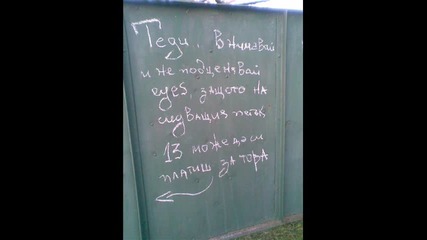 Теди, внимавай
и не подценявай
eyes, защото на
следващия петък
13 може да си
платиш за тора